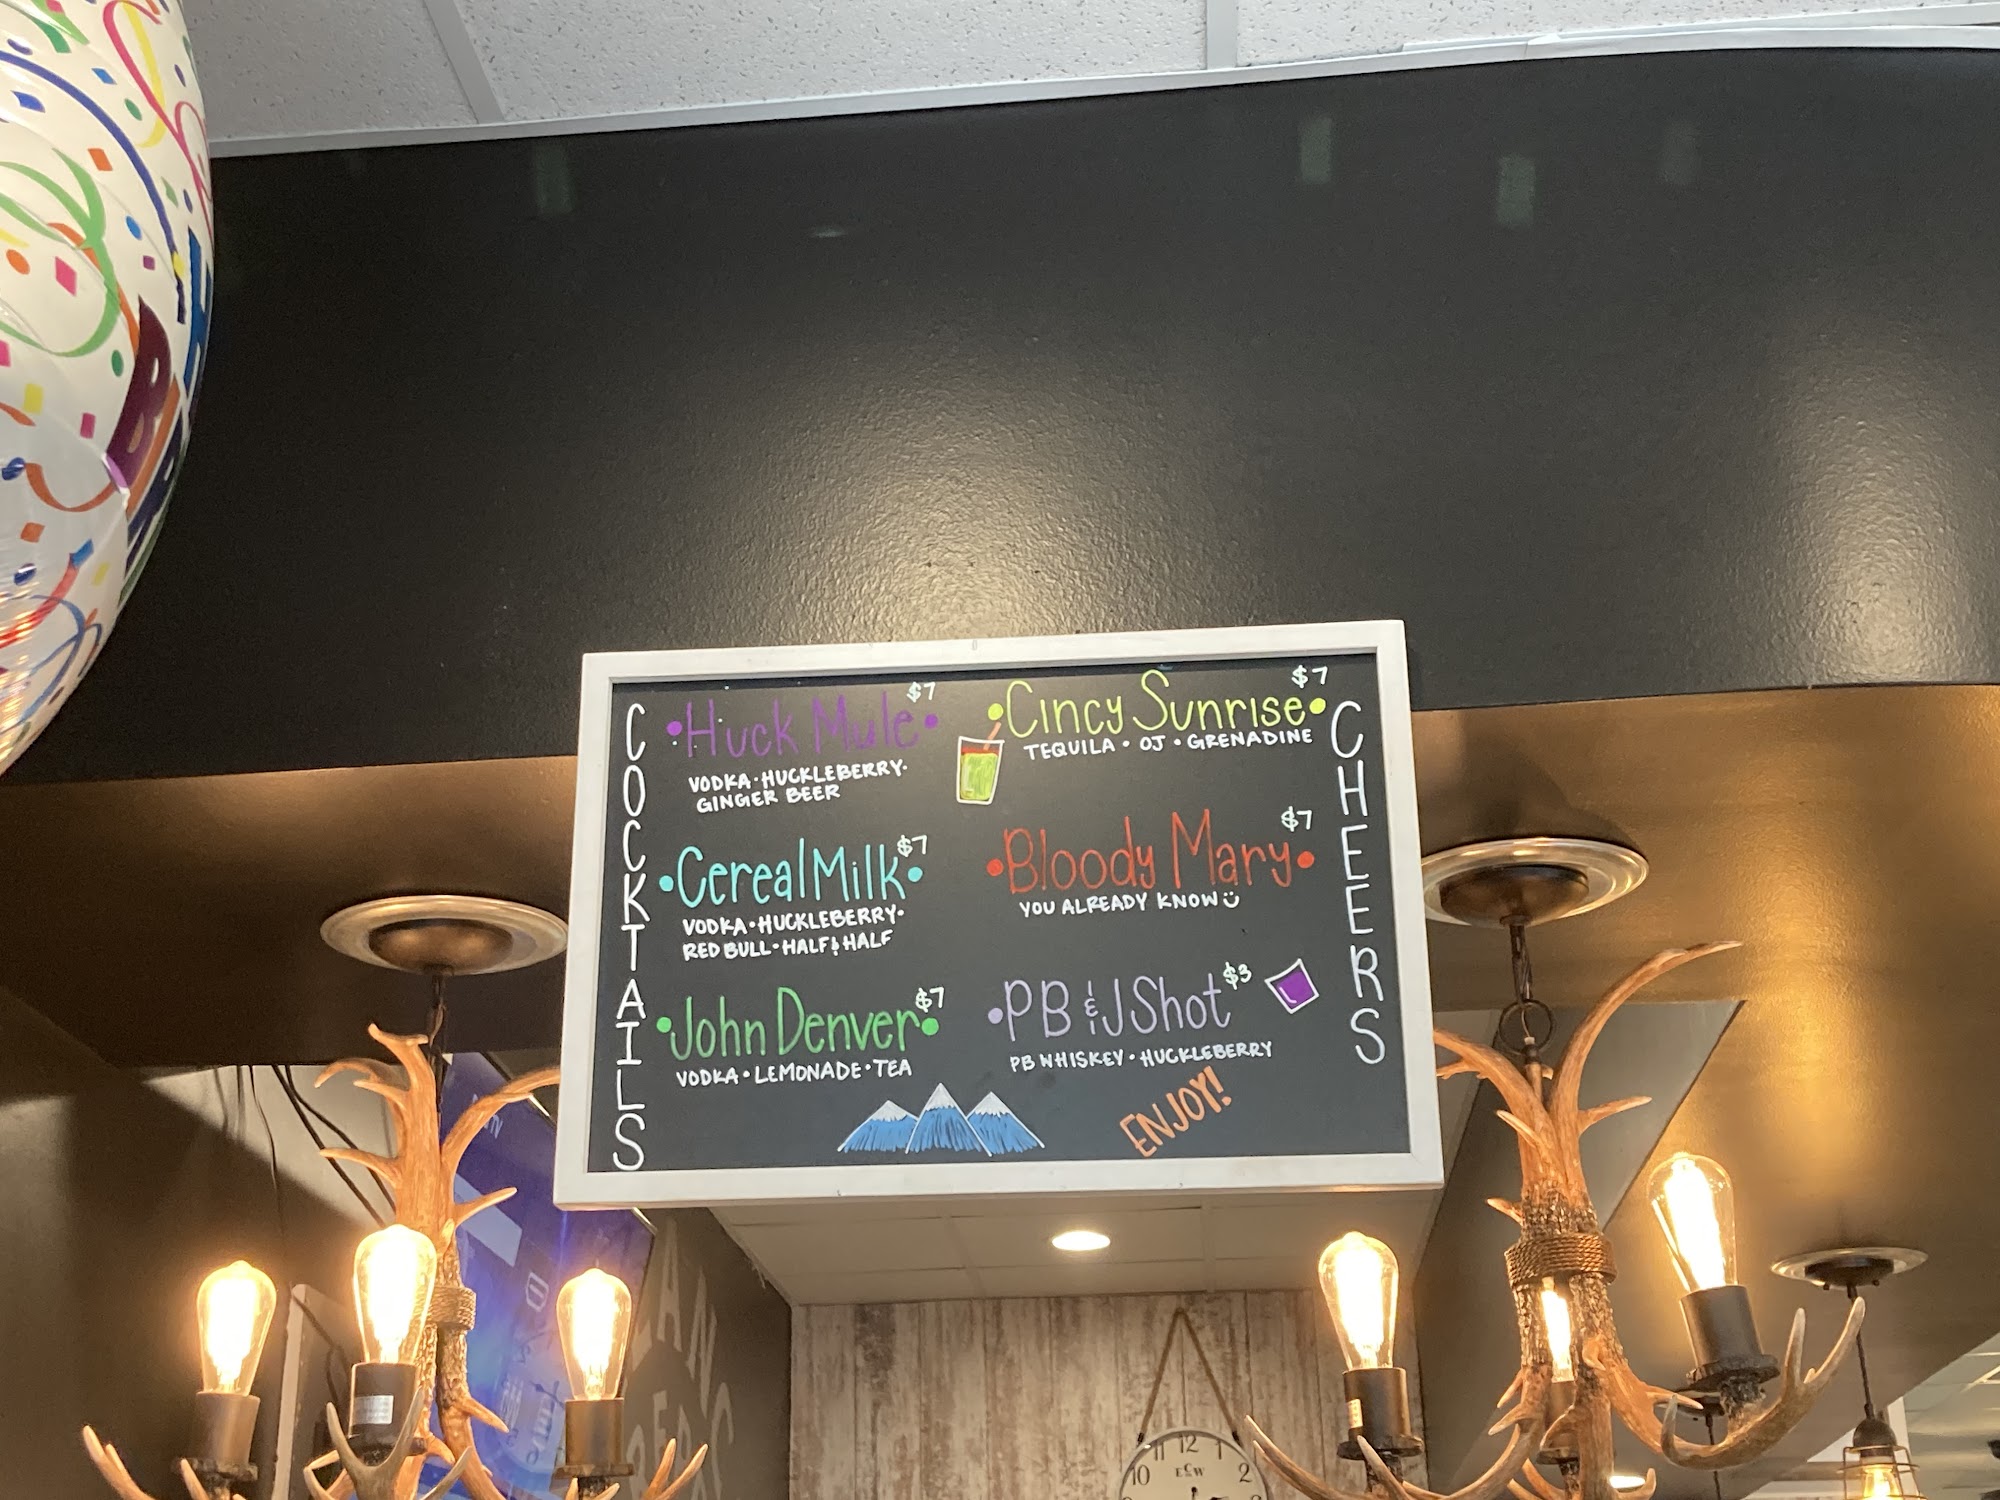 COCKTAILS
Huck Mule $7
VODKA · HUCKLEBERRY ·
GINGER BEER
Cereal Milk $7
VODKA · HUCKLEBERRY ·
RED BULL · HALF & HALF
John Denver $7
VODKA · LEMONADE · TEA
Cincy Sunrise $7
TEQUILA · OJ · GRENADINE
Bloody Mary $7
YOU ALREADY KNOW
PB & J Shot $3
PB WHISKEY · HUCKLEBERRY
ENJOY!
CHEERS
10 11 12 1 2